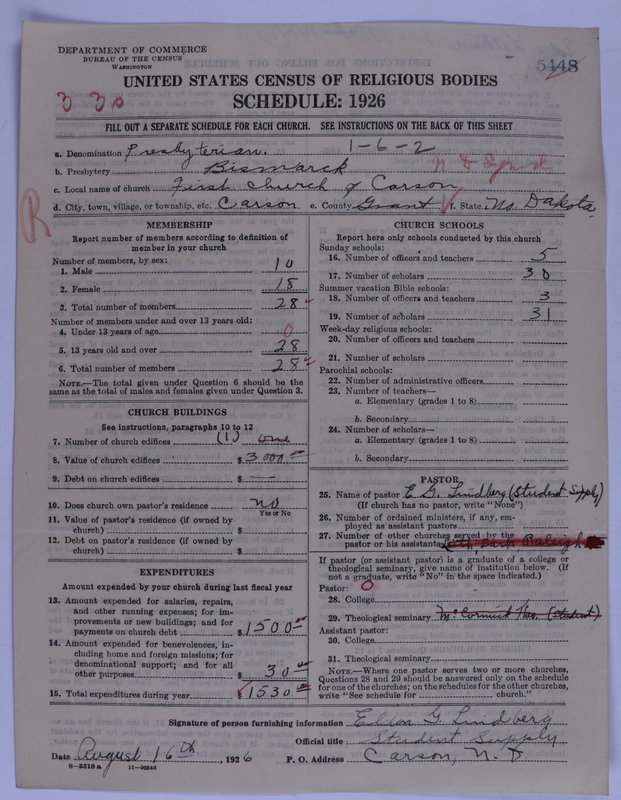 DEPARTMENT OF COMMERCE
BUREAU OF THE CENSUS
WASHINGTON
5448
UNITED STATES CENSUS OF RELIGIOUS BODIES
330
SCHEDULE: 1926
FILL OUT A SEPARATE SCHEDULE FOR EACH CHURCH. SEE INSTRUCTIONS ON THE BACK OF THIS SHEET
a. Denomination Presbyterian. 1-6-2
b. Presbytery Bismarck N D Synod
c. Local name of church First Church of Carson
d. City, town, village, or township, etc. Carson e. County Grant f. State No. Dakota
R
MEMBERSHIP
Report number of members according to definition of
member in your church
Number of members, by sex:
1. Male 10
2. Female 18
3. Total number of members 28
Number of members under and over 13 years old:
4. Under 13 years of age 0
5. 13 years old and over 28
6. Total number of members 28
NOTE.—The total given under Question 6 should be the
same as the total of males and females given under Question 3.
CHURCH BUILDINGS
See instructions, paragraphs 10 to 12
7. Number of church edifices (1) one
8. Value of church edifices $ 3000
9. Debt on church edifices $ —
10. Does church own pastor's residence no
Yes or No
11. Value of pastor's residence (if owned by
church) $
12. Debt on pastor's residence (if owned by
church) $
EXPENDITURES
Amount expended by your church during last fiscal year
13. Amount expended for salaries, repairs,
and other running expenses; for im-
provements or new buildings; and for
payments on church debt $ 1500
14. Amount expended for benevolences, in-
cluding home and foreign missions; for
denominational support; and for all
other purposes $ 30
15. Total expenditures during year $ 1530
CHURCH SCHOOLS
Report here only schools conducted by this church
Sunday schools:
16. Number of officers and teachers 5
17. Number of scholars 30
Summer vacation Bible schools:
18. Number of officers and teachers 3
19. Number of scholars 31
Week-day religious schools:
20. Number of officers and teachers
21. Number of scholars
Parochial schools:
22. Number of administrative officers
23. Number of teachers—
a. Elementary (grades 1 to 8)
b. Secondary
24. Number of scholars—
a. Elementary (grades 1 to 8)
b. Secondary
PASTOR
25. Name of pastor E. G. Lindberg (Student Supply)
(If church has no pastor, write "None")
26. Number of ordained ministers, if any, em-
ployed as assistant pastors
27. Number of other churches served by the
pastor or his assistants
If pastor (or assistant pastor) is a graduate of a college or
theological seminary, give name of institution below. (If
not a graduate, write "No" in the space indicated.)
Pastor: 0
28. College
29. Theological seminary McCormick Theo. (Student)
Assistant pastor:
30. College
31. Theological seminary
NOTE.—Where one pastor serves two or more churches,
Questions 28 and 29 should be answered only on the schedule
for one of the churches; on the schedules for the other churches,
write "See schedule for church."
Signature of person furnishing information Eldon G. Lindberg
Official title Student Supply
Date August 16th, 1926 P. O. Address Carson, N. D.
8-5518a